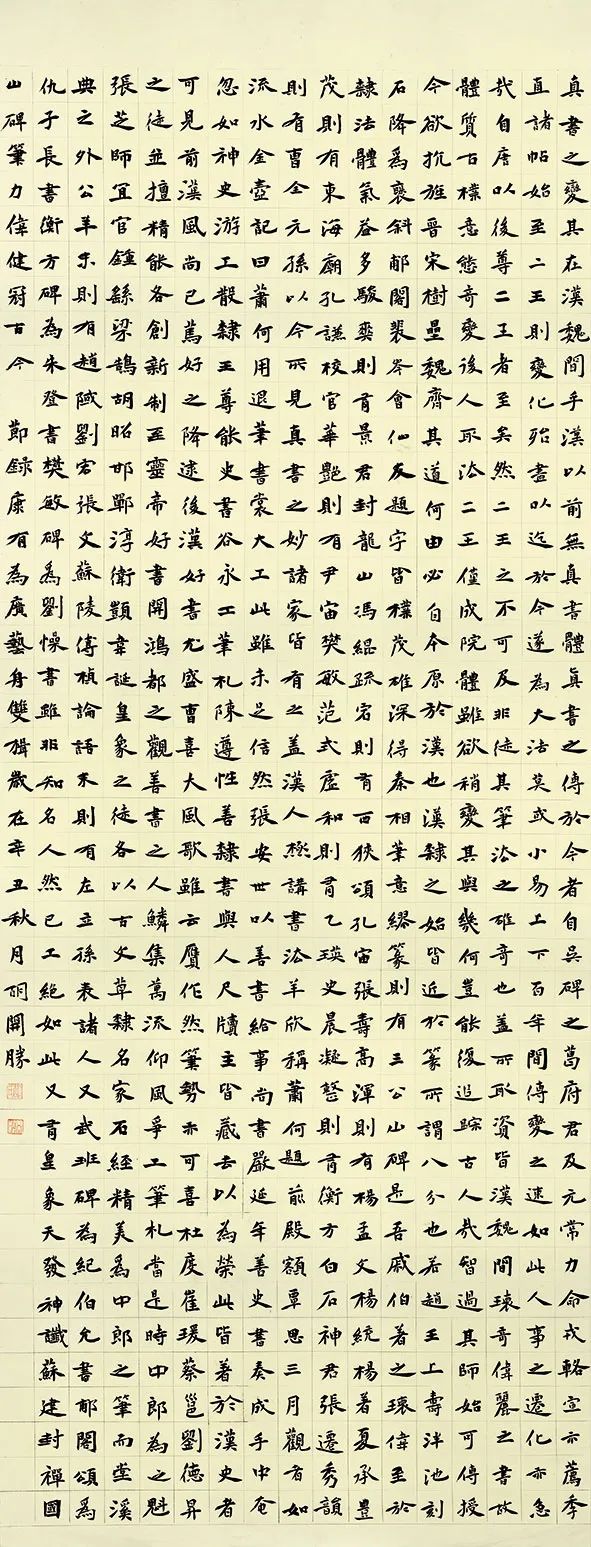 真書之變其在漢魏間乎漢以前無真書體真書之傳於今者自吳碑之葛府君及元常力命戎輅宣示薦季
直諸帖始至二王則變化殆盡以迄於今遂為大法莫或小易上下百年間傳變之速如此人事之遷化亦急
哉自唐以後尊二王者至矣然二王之不可及非徒其筆法之雄奇也蓋所取資皆漢魏間瓌奇偉麗之書故
體質古樸意態奇變後人取法二王僅成院體雖欲稍變其與幾何豈能復追踪古人哉智過其師始可傳授
今欲抗旌晉宋樹壘魏齊其道何由必自本原於漢也漢隸之始皆近於篆所謂八分也若趙王上壽泮池刻
石降為褒斜郙閣裴岑會仙友題字皆樸茂雄深得秦相筆意繆篆則有三公山碑是吾戚伯著之瓌偉至於
隸法體氣益多駿爽則有景君封龍山馮緄疏宕則有西狹頌孔宙張壽高渾則有楊孟文楊統楊著夏承豐
茂則有東海廟孔謙校官華艷則有尹宙樊敏范式虛和則有乙瑛史晨凝整則有衡方白石神君張遷秀韻
則有曹全元孫以今所見真書之妙諸家皆有之蓋漢人極講書法羊欣稱蕭何題前殿額覃思三月觀者如
流水金壺記曰蕭何用退筆書裳大工此雖未足信然張安世以善書給事尚書嚴延年善史書奏成手中奄
忽如神史游工散隸王尊能史書谷永工筆札陳遵性善隸書與人尺牘主皆藏去以為榮此皆著於漢史者
可見前漢風尚已篤好之降逮後漢好書尤盛曹喜大風歌雖云贋作然筆勢亦可喜杜度崔瑗蔡邕劉德昇
之徒並擅精能各創新制至靈帝好書開鴻都之觀善書之人鱗集萬流仰風爭工筆札當是時中郎為之魁
張芝師宜官鍾繇梁鵠胡昭邯鄲淳衛顗韋誕皇象之徒各以古文草隸名家石經精美為中郎之筆而堂溪
典之外公羊末則有趙陚劉宏張文蘇陵傅楨論語末則有左立孫表諸人又武班碑為紀伯允書郙閣頌為
仇子長書衡方碑為朱登書樊敏碑為劉懆書雖非知名人然已工絕如此又有皇象天發神讖蘇建封禪國
山碑筆力偉健冠古今 節錄康有為廣藝舟雙楫歲在辛丑秋月胡開勝